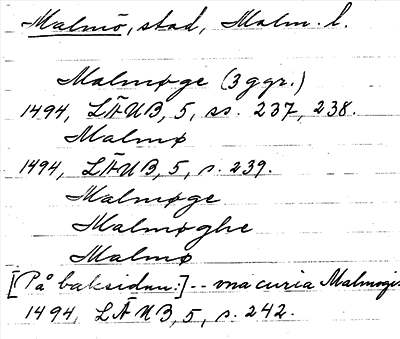 Malmö, stad, Malm. l.
Malmøge (3 ggr.)
1494, LÄUB, 5, ss. 237, 238.
Malmø
1494, LÄUB, 5, s. 239.
Malmøge
Malmøghe
Malmø
[På baksidan:] -- curia Malmogie
1494, LÄUB, 5, s. 242.